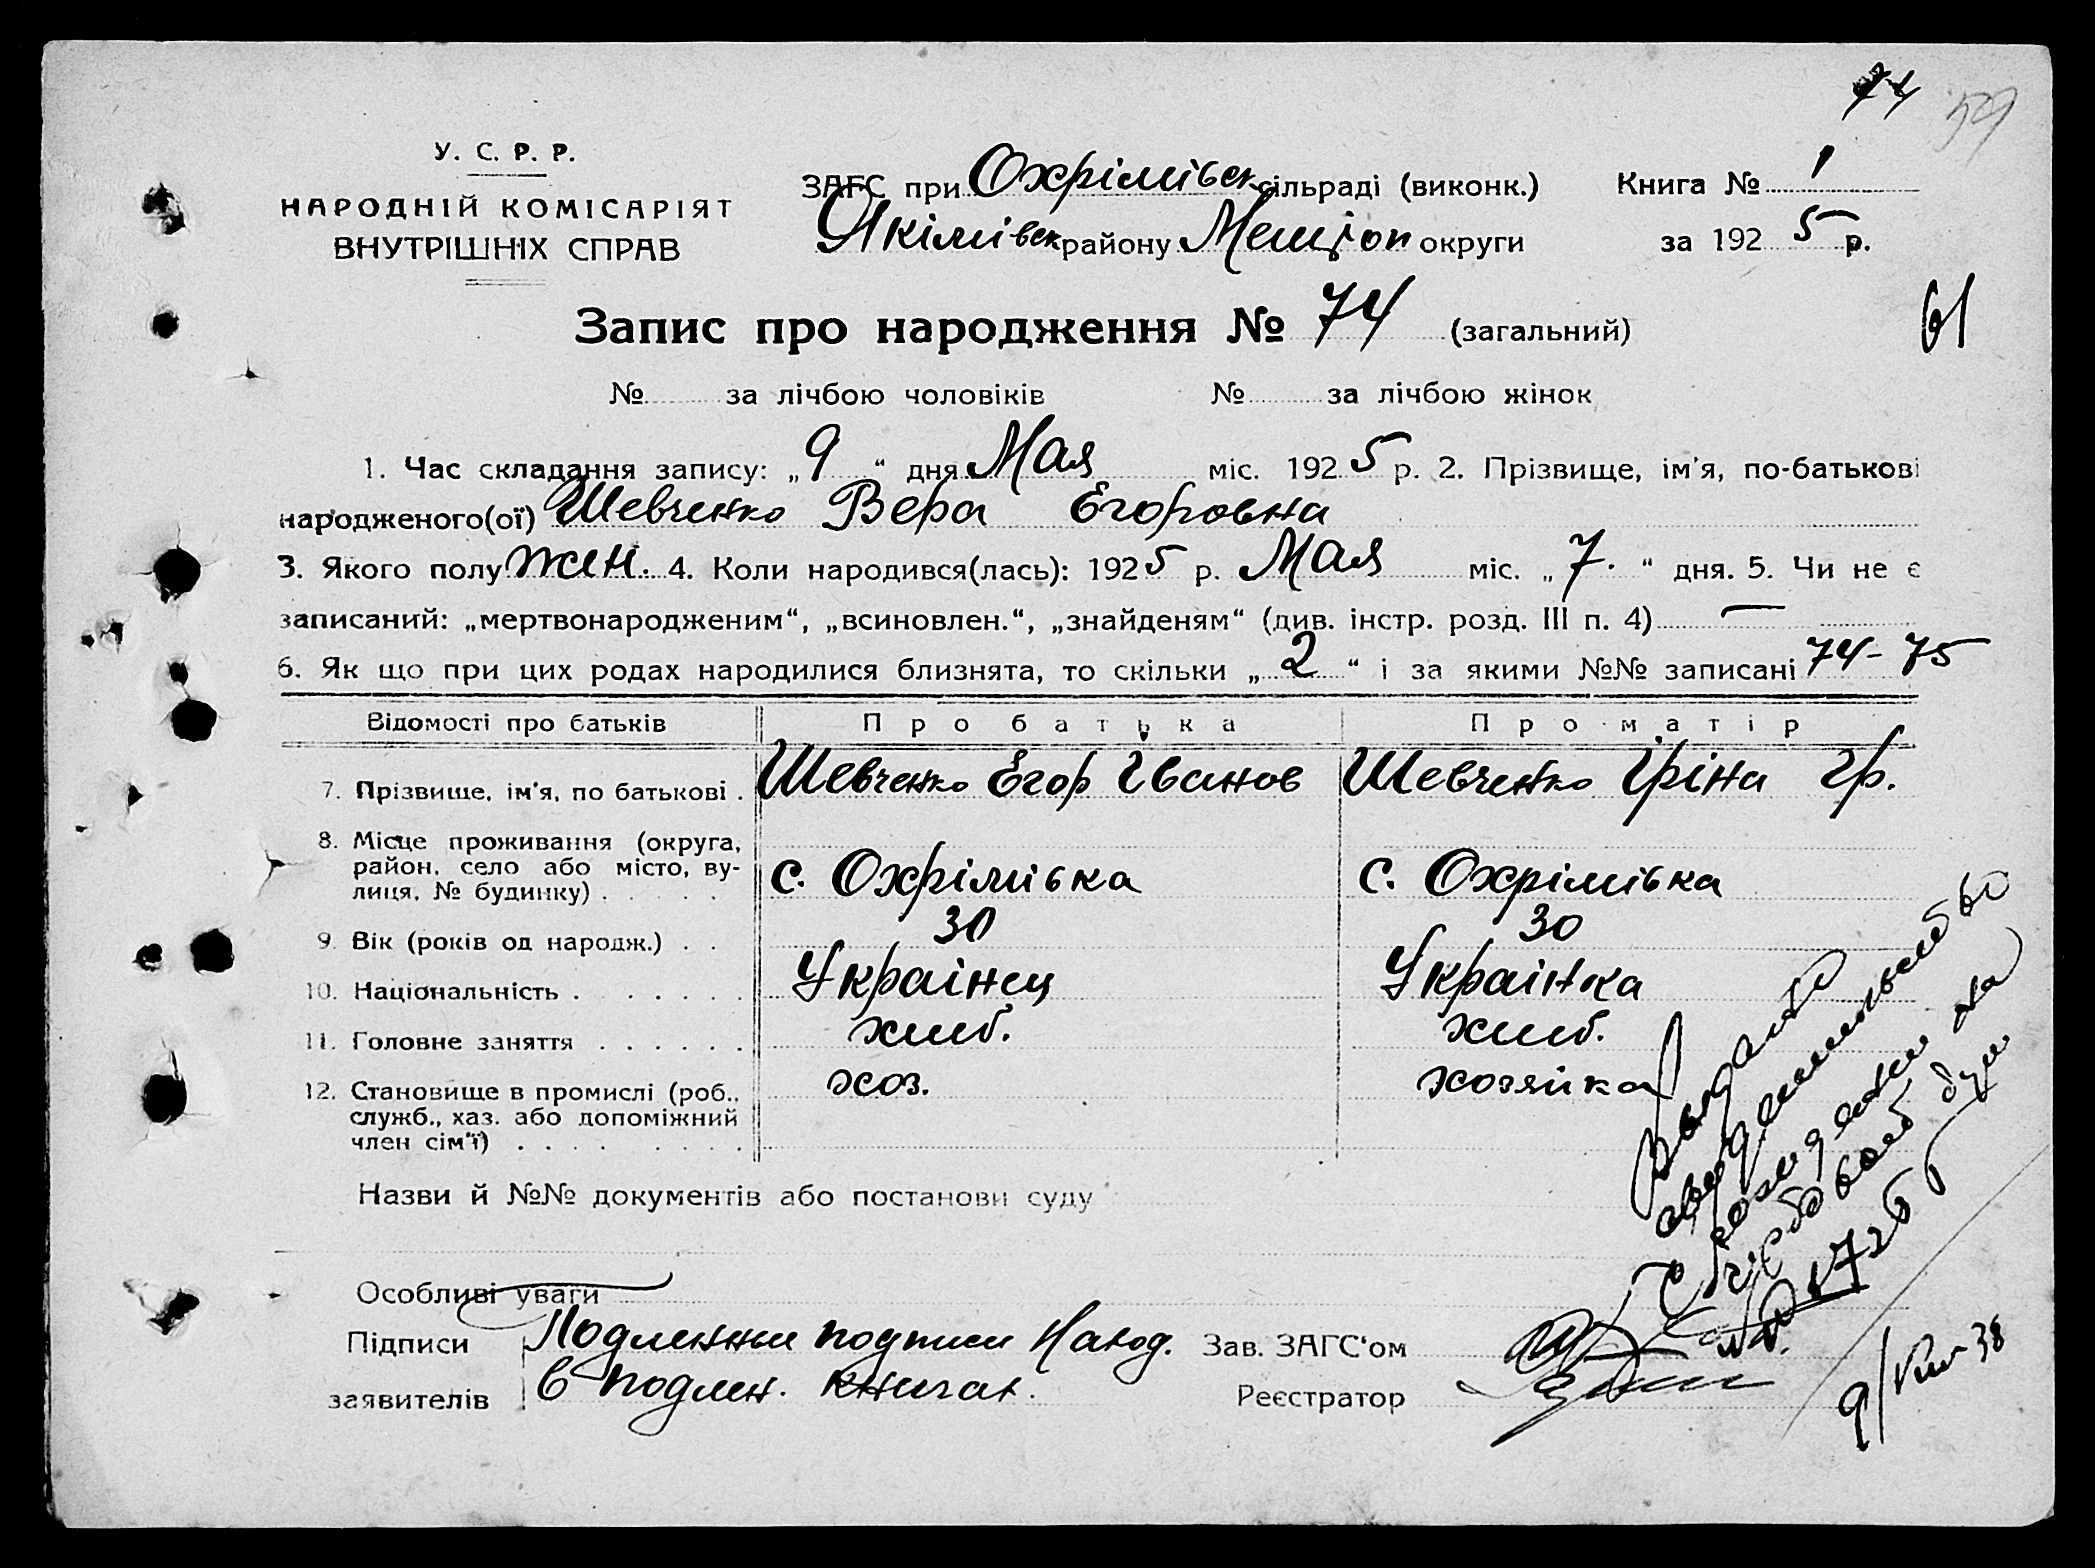 74 59
У. С. Р. Р.
НАРОДНІЙ КОМІСАРІЯТ
ВНУТРІШНІХ СПРАВ
ЗАГС при Охрімівск сільраді (виконк.) Книга № 1
Якімівск району Меліт̣оп округи за 1925 р.
Запис про народження № 74 (загальний)
61
№ за лічбою чоловіків № за лічбою жінок
1. Час складання запису: „9“ дня Мая міс. 1925 р. 2. Прізвище, ім'я, по-батькові
народженого(ої) Шевченко Вера Егоровна
3. Якого полу жен. 4. Коли народився(лась): 1925 р. Мая міс. „7.“ дня. 5. Чи не є
записаний: „мертвонародженим“, „всиновлен.“, „знайденям“ (див. інстр. розд. III п. 4) —
6. Як що при цих родах народилися близнята, то скільки „2“ і за якими №№ записані 74-75
Відомості про батьків Про батька Про матір
7. Прізвище, ім'я, по батькові . Шевченко Егор Іванов Шевченко Іріна Гр.
8. Місце проживання (округа,
район, село або місто, ву-
лиця, № будинку) . . . . . с. Охрімівка с. Охрімівка
9. Вік (років од народж.) . . 30 30
10. Національність . . . . . . . Украінец Украінка
11. Головне заняття . . . . . . хліб. хліб.
12. Становище в промислі (роб.,
служб., хаз. або допоміжний
член сім'ї) . . . . . . . . хоз. хозяйка
Видано
свидетельство
о рождении на
Назви й №№ документів або постанови суду
Особливі уваги
Підписи Подлинни подписи наход. Зав. ЗАГС'ом
заявителів в подлин. книгах. Реєстратор